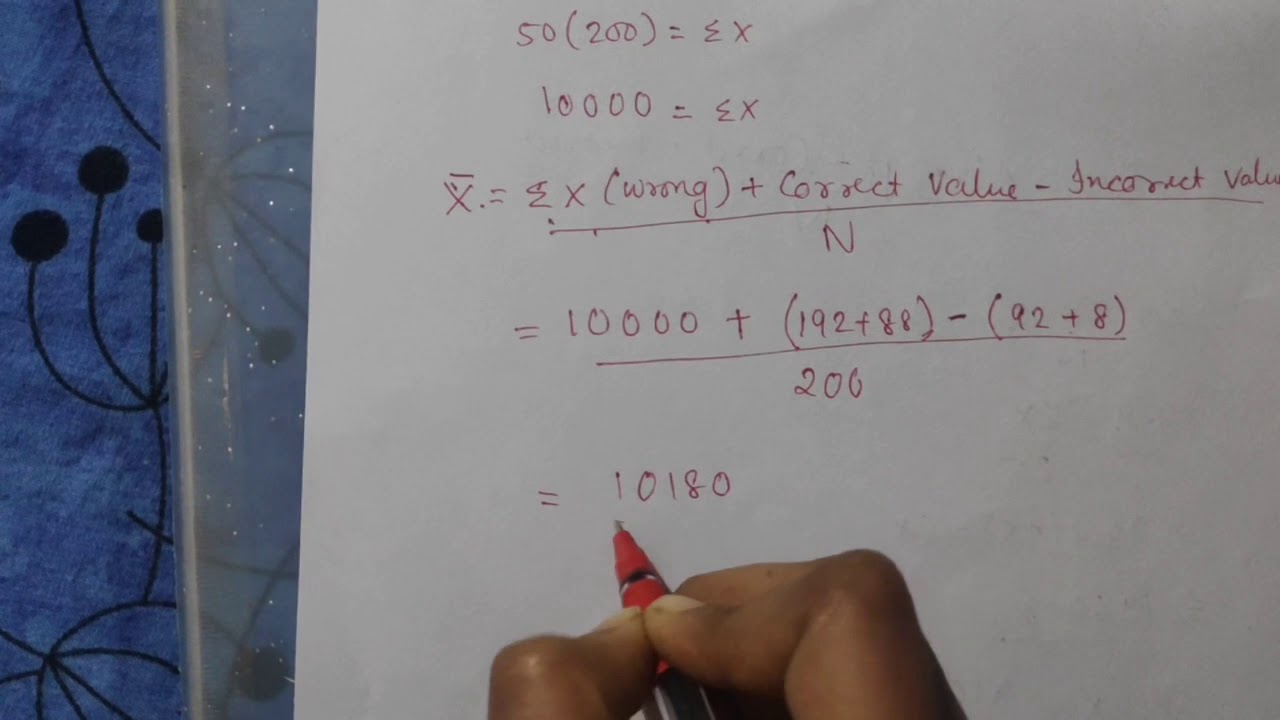 50(200) = Σx
10000 = Σx
X̄ = Σx (wrong) + Correct Value - Incorrect Valu
N
= 10000 + (192+88) - (92+8)
200
= 10180